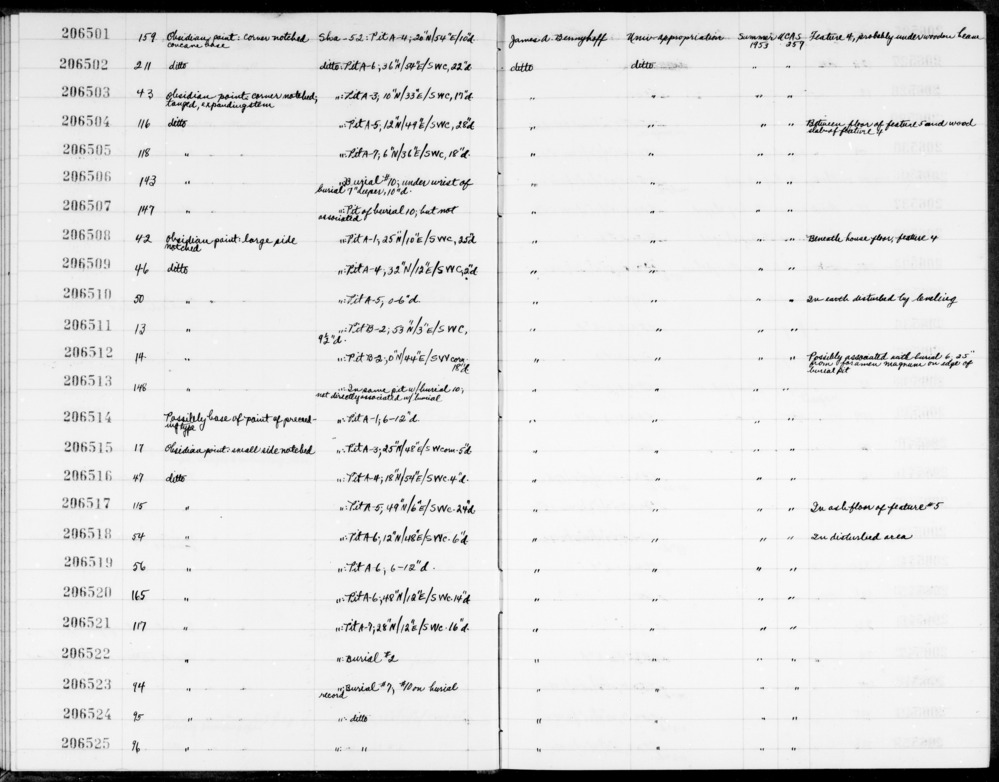 206501 159 Obsidian point: corner notched Sha-52: Pit A-4; 20"N/54"E/10"d. James A. Bennyhoff Univ. appropriation Summer UCAS Feature 4, probably under wooden beam
concave base 1953 259
206502 211 ditto ditto: Pit A-6; 36"N/54"E/SWC, 22"d ditto ditto " "
206503 43 Obsidian point: corner notched; ": Pit A-3; 10"N/33"E/SWC, 17"d " " " "
tanged, expanding stem
206504 116 ditto ": Pit A-5; 12"N/49"E/SWC, 28"d " " " " Between floor of feature 5 and wood
slab of feature 4
206505 118 " ": Pit A-7; 6"N/36"E/SWC, 18"d. " " " "
206506 143 " ": Burial #10; under wrist of " " " "
burial 7" deeper, 10"d.
206507 147 " ": Pit of burial 10; but not " " " "
associated
206508 42 Obsidian point: large side ": Pit A-1; 25"N/10"E/SWC, 25"d " " " " Beneath house floor, feature 4
notched
206509 46 ditto ": Pit A-4; 32"N/12"E/SWC, 2"d " " " "
206510 50 " " ": Pit A-5; 0-6"d. " " " " In earth disturbed by leveling
206511 13 " ": Pit B-2; 53"N/3"E/SWC, " " " "
9½"d.
206512 14 " ": Pit B-2; 0"N/44"E/SW corn. " " " " Possibly associated with burial 6, 25"
18"d from foramen magnum on edge of
burial pit
206513 148 " ": In same pit w/ burial 10; " " " "
not directly associated w/ burial
206514 Possibly base of point of preced- ": Pit A-1; 6-12"d. " " " "
ing type
206515 17 Obsidian point: small side notched ": Pit A-3; 25"N/48"E/SW corn. 5"d " " " "
206516 47 ditto ": Pit A-4; 18"N/54"E/SWC. 4"d. " " " "
206517 115 " ": Pit A-5; 49"N/6"E/SWC. 24"d " " " " In ash floor of feature #5
206518 54 " ": Pit A-6; 12"N/48"E/SWC. 6"d. " " " " In disturbed area
206519 56 " ": Pit A-6; 6-12"d. " " " "
206520 165 " ": Pit A-6; 48"N/12"E/SWC. 14"d " " " "
206521 117 " ": Pit A-7; 28"N/12"E/SWC. 16"d. " " " "
206522 " ": Burial #2 " " " "
206523 94 " ": Burial #7, #10 on burial " " " "
record
206524 95 " ": ditto " " " "
206525 96 " ": " " " " "